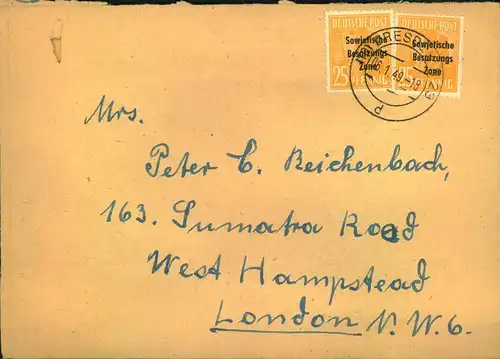 DEUTSCHE POST DEUTSCHE POST
Sowjetische Sowjetische
Besatzungs Besatzungs
Zone Zone
25 PFENNIG 25 PFENNIG
DRESDEN
Mrs.
Peter C. Reichenbach,
163. Sumatra Road
West Hampstead
London N.W.6.